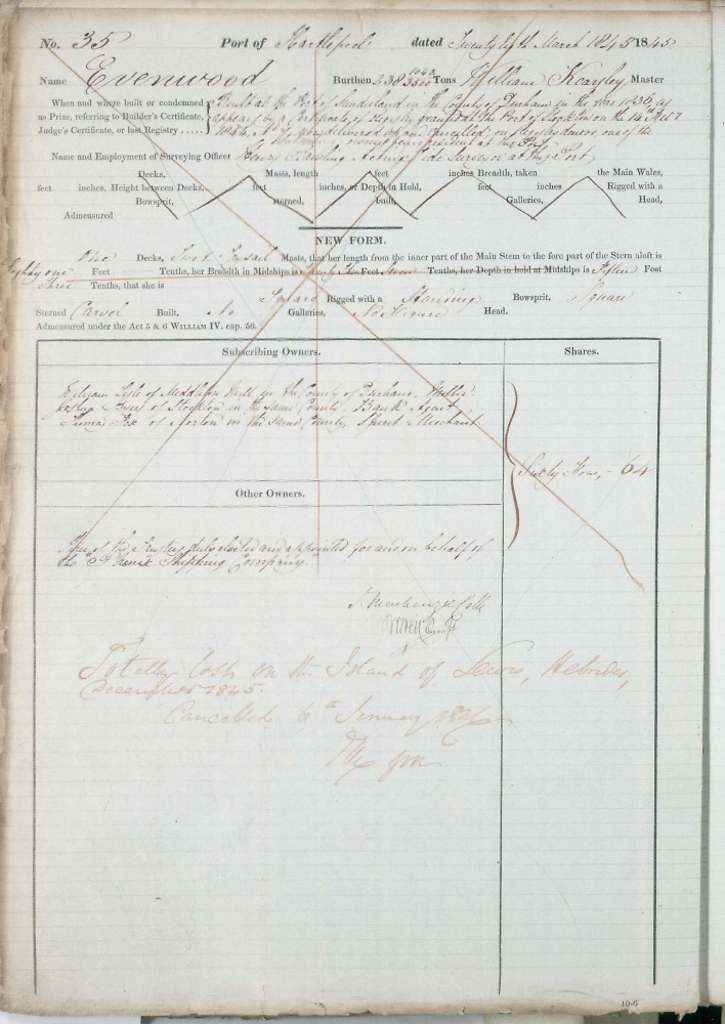 No. 35 Port of Hartlepool dated Twenty fifth March 1845 1845
Name Evenwood Burthen 238 Tons William Kearsley Master
When and where built or condemned Built at the Port of Sunderland in the County of Durham in the year 1836 as
as Prize, referring to Builder's Certificate, appears by a Certificate of Registry granted at the Port of Stockton on the 14 Oct
Judge's Certificate, or last Registry ...... now delivered up and cancelled, one of the
Name and Employment of Surveying Officer Henry Acting Tide Surveyor at this Port
Decks, Masts, length feet inches Breadth, taken the Main Wales,
feet inches, Height between Decks, feet inches, or Depth in Hold, feet inches Rigged with a
Bowsprit, sterned, built, Galleries, Head,
Admeasured
NEW FORM.
One Decks, Two & Trysail Masts, that her length from the inner part of the Main Stem to the fore part of the Stern aloft is
Eighty one Feet Tenths, her Breadth in Midships is Twenty Feet Seven Tenths, her Depth in hold at Midships is Fifteen Feet
Three Tenths, that she is
Square Rigged with a Standing Bowsprit, Square
Sterned Carvel Built, No Galleries, No Figure Head.
Admeasured under the Act 5 & 6 WILLIAM IV. cap. 56.
Subscribing Owners. Shares.
William Lisle of Middleton Hill in the County of Durham,
Joshua Byers of Stockton in the same County, Bank Agent
Thomas Fox of Norton in the same County, Spirit Merchant
Sixty Four, - 64
Other Owners.
of the Trustees duly elected and appointed for and on behalf of
the Shipping Company.
Totally lost on the Island of Lewis, Hebrides,
December 1845.
Cancelled 6th January 1846
10-6